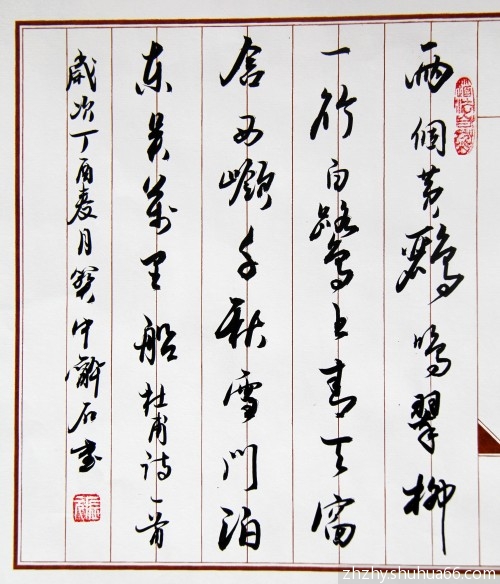 道法自然
兩個黄鸝鳴翠柳
一行白鷺上青天窗
含西嶺千秋雪门泊
东吴萬里船杜甫诗一首
歲次丁酉夏月冀中石书
zhzhy.shuhua66.com